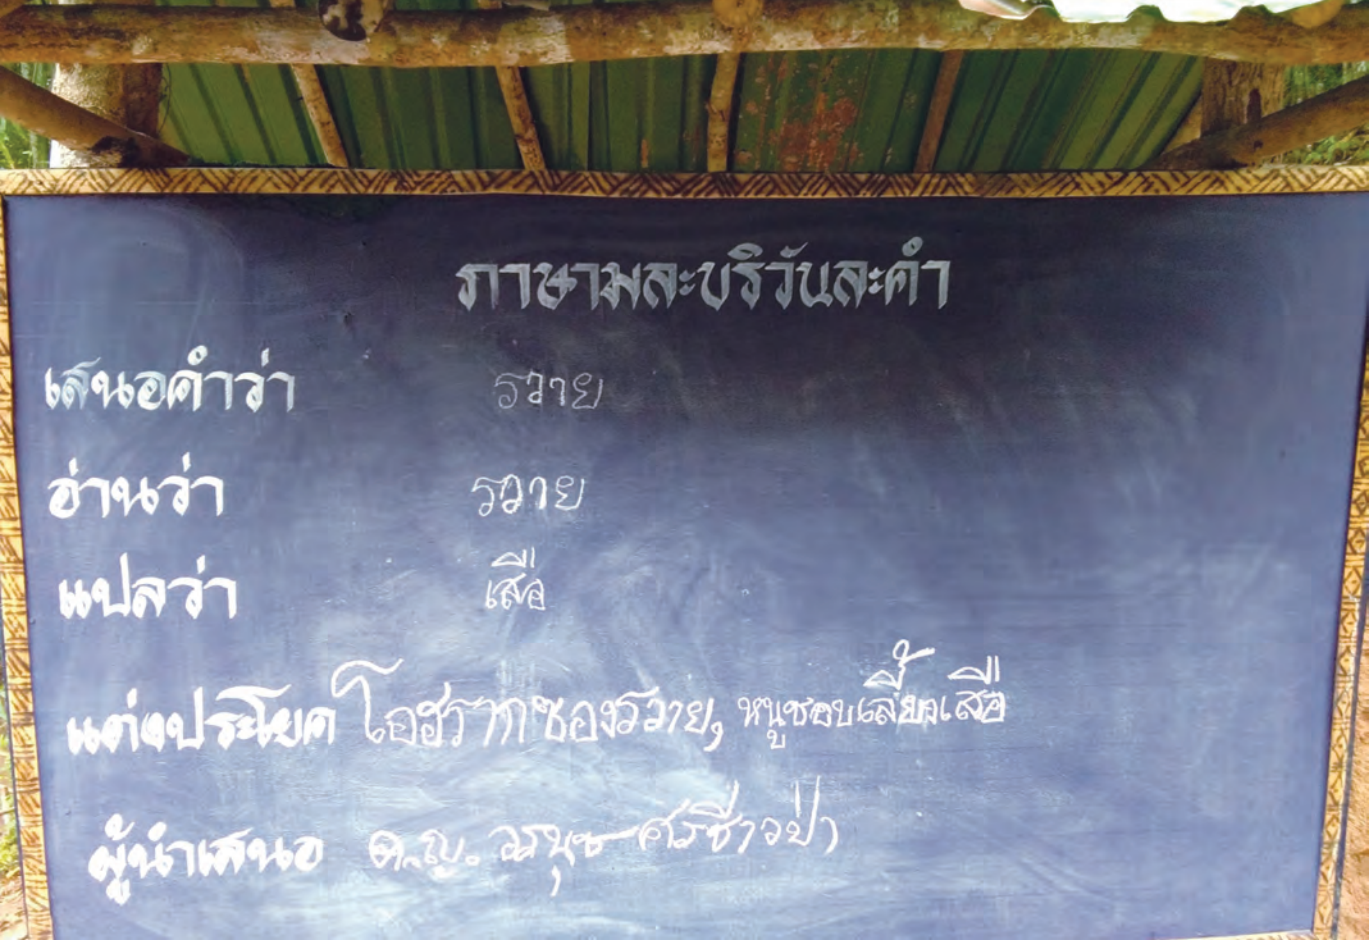 ภาษามละบริวันละคำ
เสนอคำว่า รวาย
อ่านว่า รวาย
แปลว่า เสือ
แต่งประโยค โอฮรากซองรวาย, หนูชอบเลี้ยงเสือ
ผู้นำเสนอ ด.ญ. วรนุช ศรีชาวป่า